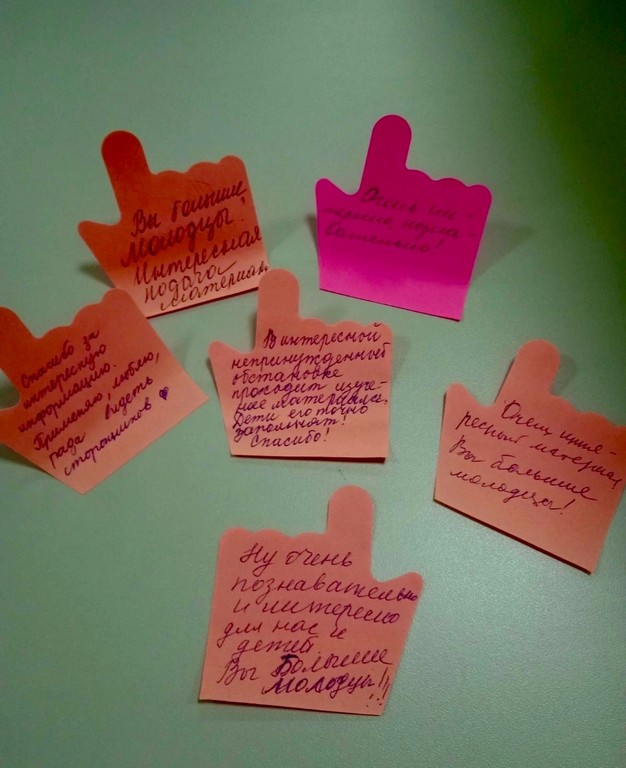 Вы большие
молодцы!
Интересная
подача
материала
Очень ин-
тересно позна-
вательно!
Спасибо за
интересную
информацию.
Применяю, люблю,
рада видеть
сторонников ♥
В интересной
непринужденный
обстановке
проходит изуче-
ние материала.
Дети его точно
запомнят!
Спасибо!
Очень инте-
ресный материал
Вы большие
молодцы!
Ну очень
познавательно
и интересно
для нас и
детей.
Вы Большие
молодцы!!!